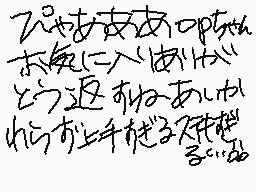 ぴゃあああopちゃん
お気に入りありが
とう返すねーあいか
れらず上手すぎる天才すぎ
る……